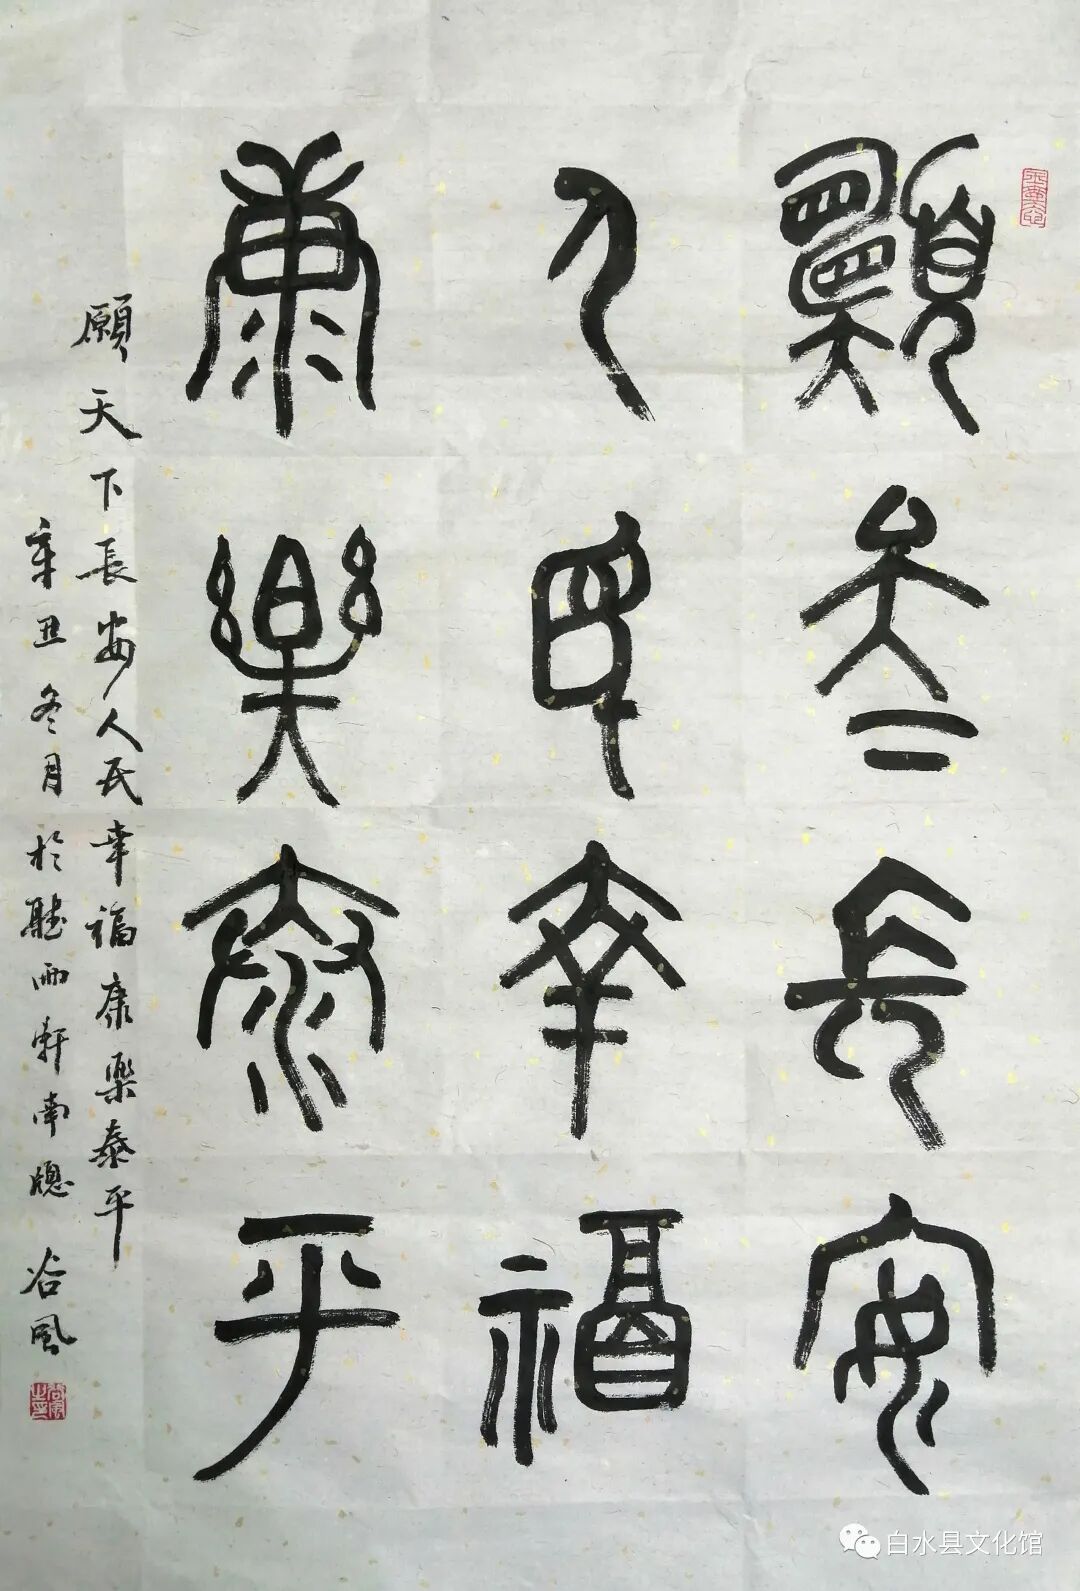 願天下長安
人民幸福
康樂泰平
願天下長安人民幸福康樂泰平
辛丑冬月於聽雨軒南窗谷風
白水县文化馆